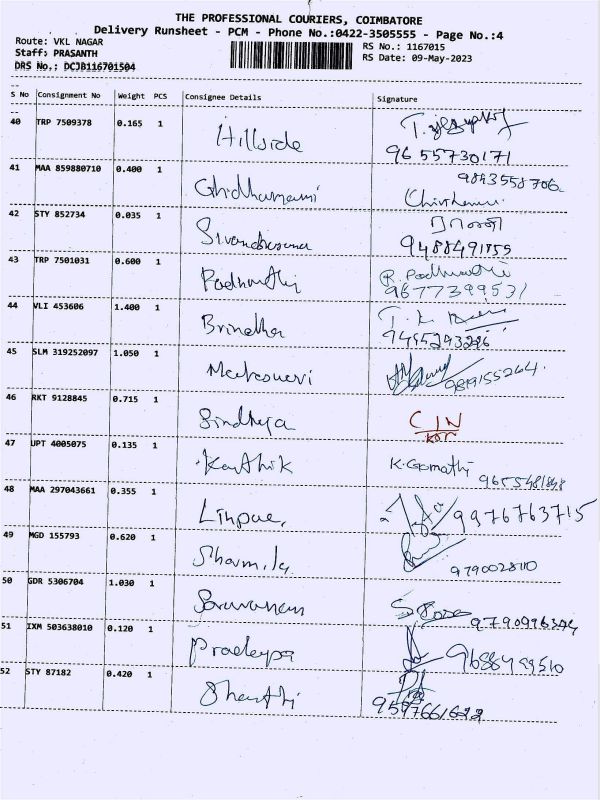 THE PROFESSIONAL COURIERS, COIMBATORE
Delivery Runsheet - PCM - Phone No.:0422-3505555 - Page No.:4
Route: VKL NAGAR RS No.: 1167015
Staff: PRASANTH RS Date: 09-May-2023
DRS No.: DCJB116701504
S No Consignment No Weight PCS Consignee Details Signature
40 TRP 7509378 0.165 1 Hillside
9655730171
41 MAA 859880710 0.400 1 9843558706
42 STY 852734 0.035 1
9488491855
43 TRP 7501031 0.600 1 Padhmathi R. Padhmathi
9677399531
44 VLI 453606 1.400 1 Brindha
9495293286
45 SLM 319252097 1.050 1
46 RKT 9128845 0.715 1 Sindhya C I N
47 UPT 4005075 0.135 1 Karthik K. Gomathi
48 MAA 297043661 0.355 1 9976763715
49 MGD 155793 0.620 1 Sharmila
50 GDR 5306704 1.030 1 Saravanan
51 IXM 503638010 0.120 1 Pradeepa 9688499510
52 STY 87182 0.420 1 Shanthi
9597661622